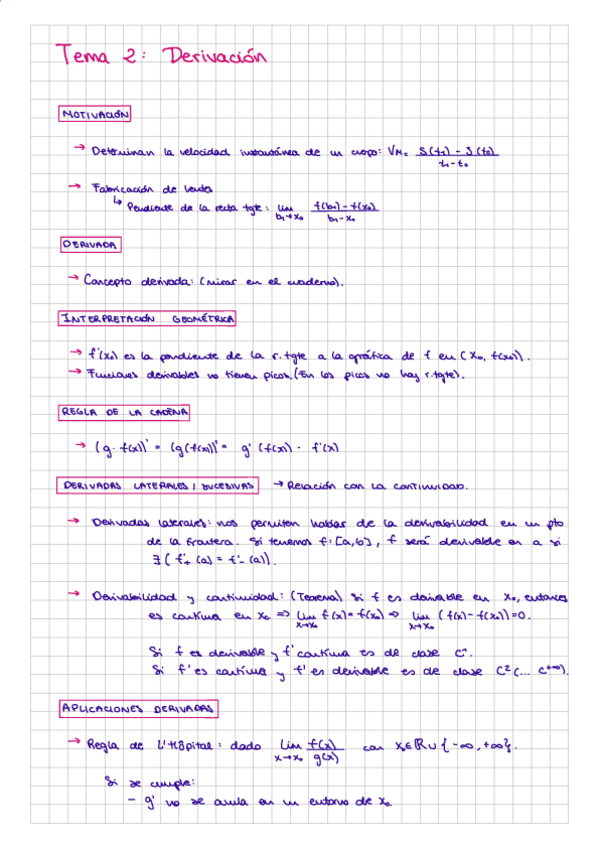 Tema 2: Derivación
MOTIVACIÓN
→ Determinan la velocidad instantánea de un cuerpo: VM = S(t1) - S(t0) / t1 - t0
→ Fabricación de lentes
↳ Pendiente de la recta tgte: lim b1→x0 f(b1) - f(x0) / b1 - x0
DERIVADA
→ Concepto derivada: (mirar en el cuaderno).
INTERPRETACIÓN GEOMÉTRICA
→ f'(x0) es la pendiente de la r. tgte a la gráfica de f en (x0, f(x0)).
→ Funciones derivables no tienen picos. (En los picos no hay r. tgte).
REGLA DE LA CADENA
→ (g · f(x))' = (g(f(x)))' = g'(f(x)) · f'(x)
DERIVADAS LATERALES / SUCESIVAS → Relación con la continuidad.
→ Derivadas laterales: nos permiten hablar de la derivabilidad en un pto
de la frontera. Si tenemos f: [a,b], f será derivable en a si
∃ ( f'+ (a) = f'- (a)).
→ Derivabilidad y continuidad: (Teorema) Si f es derivable en x0, entonces
es continua en x0 => lim x→x0 f(x) = f(x0) => lim x→x0 (f(x) - f(x0)) = 0.
Si f es derivable y f' continua es de clase C¹.
Si f' es continua y f' es derivable es de clase C²(... C+∞).
APLICACIONES DERIVADAS
→ Regla de L'Hôpital: dado lim x→x0 f(x) / g(x) con x0 ∈ ℝ ∪ {-∞, +∞}.
Si se cumple:
- g' no se anula en un entorno de x0.